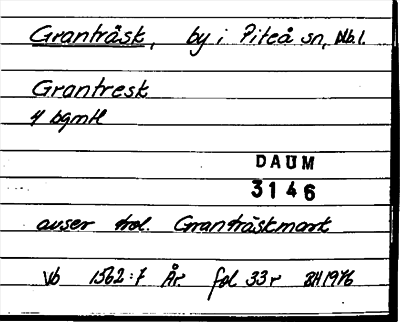 Granträsk, by i Piteå sn, Nb.l.
Grantresk
4 bgmtl
DAUM
3146
avser trol. Granträskmark
Vb 1562:7 År fol 33r BH1976